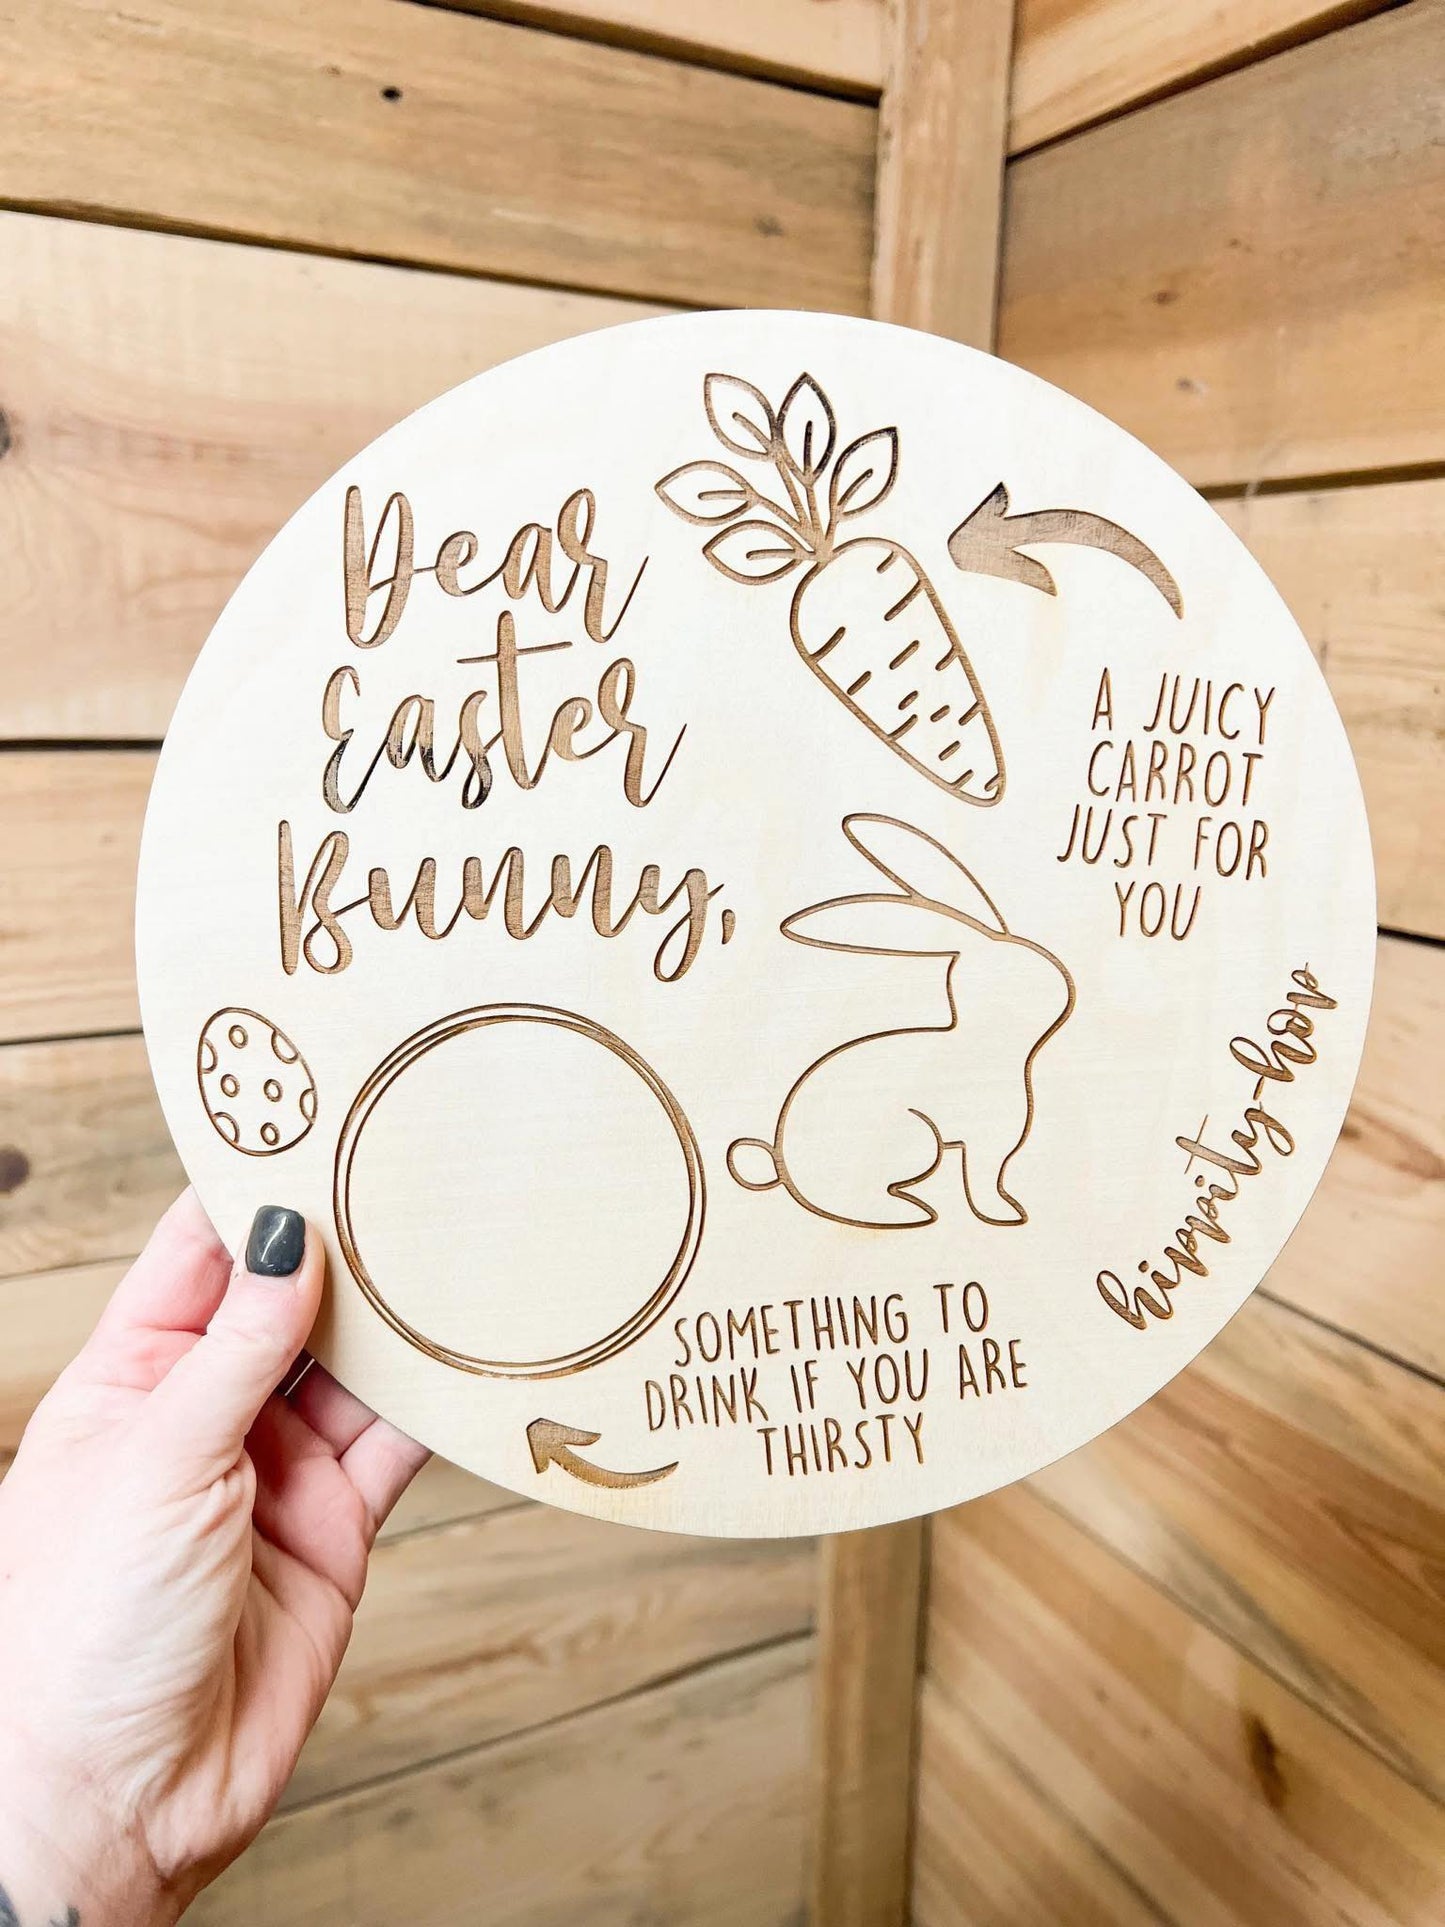 Dear
Easter
Bunny,
A JUICY
CARROT
JUST FOR
YOU
hippity-hop
SOMETHING TO
DRINK IF YOU ARE
THIRSTY